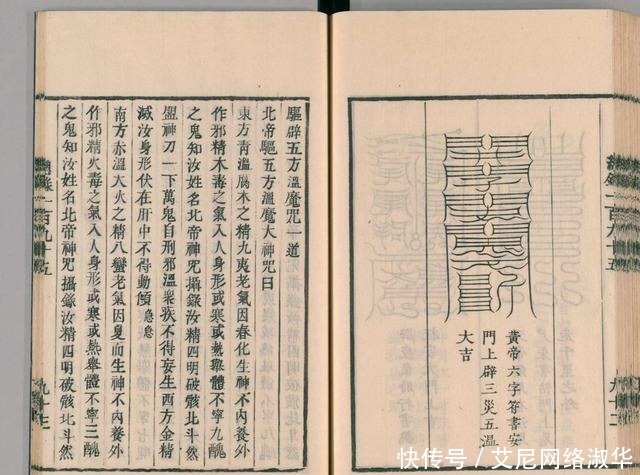 黃帝六字符書安
門上辟三災五溫
大吉
驅辟五方溫魔咒一道
北帝驅五方溫魔大神咒曰
東方青溫腐木之精九夷老氣因春化生神不內養外
作邪精木毒之氣入人身形或寒或熱舉體不寧九醜
之鬼知汝姓名北帝神咒攝錄汝精四明破骸北斗然
盟神刀一下萬鬼自刑邪溫衆疾不得妄生西方金精
滅汝身形伏在肝中不得動傾急急
南方赤溫大火之精八蠻老氣因夏而生神不內養外
作邪精火毒之氣入人身形或寒或熱舉體不寧三醜
之鬼知汝姓名北帝神咒攝錄汝精四明破骸北斗然
一百九十五
快传号/艾尼网络淑华